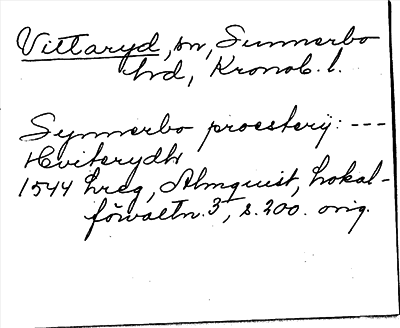 Vittaryd, sn, Sunnerbo
hd, Kronob. l.
Synnerbo proesterij: ---
Hviterydh
1544 hreg, Almquist, Lokal-
förvaltn. 3, s. 200. orig.